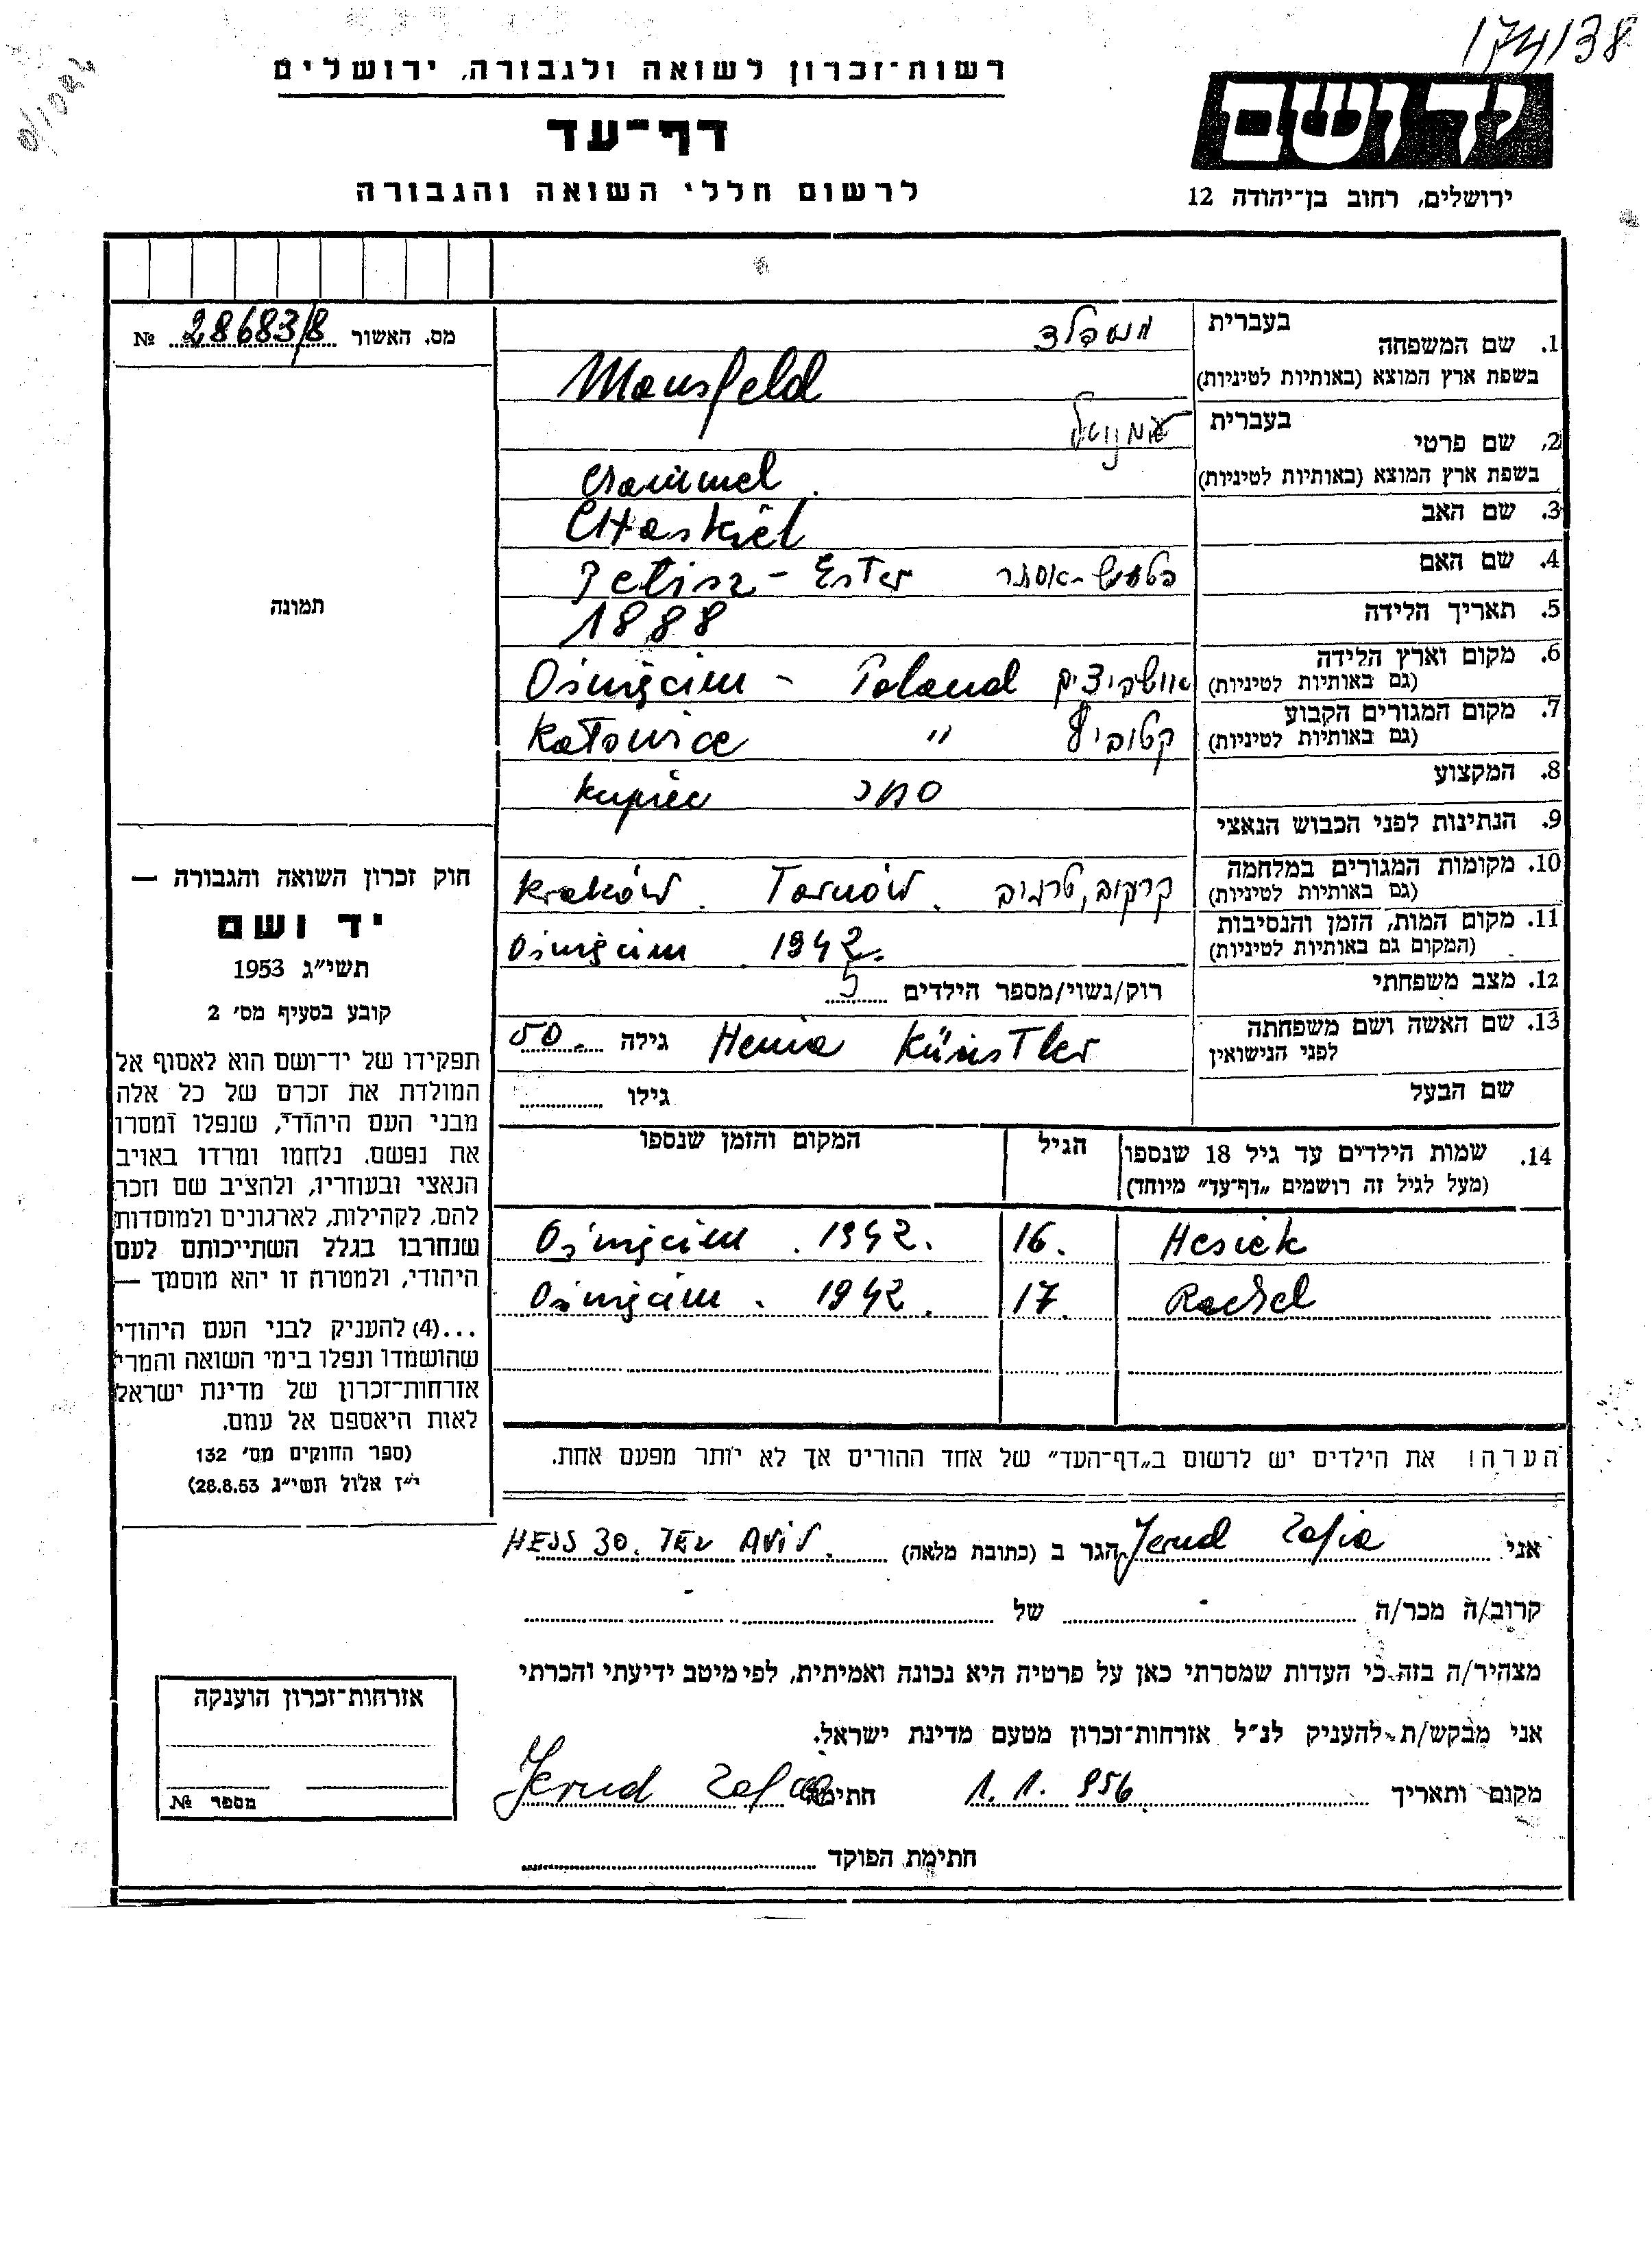 174138
רשות־זכרון לשואה ולגבורה, ירושלים
דף־עד
לרשום חללי השואה והגבורה
יד ושם
ירושלים, רחוב בן־יהודה 12
מס. האשור 28683/8 №
תמונה
1. שם המשפחה בעברית
בשפת ארץ המוצא (באותיות לטיניות) Mansfeld
2. שם פרטי בעברית עמנואל
בשפת ארץ המוצא (באותיות לטיניות)
3. שם האב CHaskiel
4. שם האם - Ester אסתר
5. תאריך הלידה 1888
6. מקום וארץ הלידה
(גם באותיות לטיניות) Oświęcim - Poland
7. מקום המגורים הקבוע
(גם באותיות לטיניות) Katowice " קטוביץ
8. המקצוע kupiec סחר
9. הנתינות לפני הכבוש הנאצי
10. מקומות המגורים במלחמה
(גם באותיות לטיניות) Kraków. Tarnów. קרקוב, טרנוב
11. מקום המות, הזמן והנסיבות
(המקום גם באותיות לטיניות) Oświęcim 1942.
12. מצב משפחתי רוק/נשוי/מספר הילדים 5
13. שם האשה ושם משפחתה
לפני הנישואין Henia Künstler גילה 50.
שם הבעל גילו
14. שמות הילדים עד גיל 18 שנספו הגיל המקום והזמן שנספו
(מעל לגיל זה רושמים „דף־עד״ מיוחד)
Hesiek 16. Oświęcim. 1942.
Rachel 17. Oświęcim. 1942.
הערה! את הילדים יש לרשום ב„דף־העד״ של אחד ההורים אך לא יותר מפעם אחת.
חוק זכרון השואה והגבורה —
יד ושם
תשי״ג 1953
קובע בסעיף מס׳ 2
תפקידו של יד־ושם הוא לאסוף אל
המולדת את זכרם של כל אלה
מבני העם היהודי, שנפלו ומסרו
את נפשם, נלחמו ומרדו באויב
הנאצי ובעוזריו, ולהציב שם וזכר
להם, לקהילות, לארגונים ולמוסדות
שנחרבו בגלל השתייכותם לעם
היהודי, ולמטרה זו יהא מוסמך —
...(4) להעניק לבני העם היהודי
שהושמדו ונפלו בימי השואה והמרי
אזרחות־זכרון של מדינת ישראל
לאות היאספם אל עמם.
(ספר החוקים מס׳ 132
י״ז אלול תשי״ג 28.8.53)
אני Jerud Zofia הגר ב (כתובת מלאה) HESS 30. TEL AVIV.
קרוב/ה מכר/ה של
מצהיר/ה בזה כי העדות שמסרתי כאן על פרטיה היא נכונה ואמיתית, לפי מיטב ידיעתי והכרתי
אני מבקש/ת להעניק לנ״ל אזרחות־זכרון מטעם מדינת ישראל.
מקום ותאריך 1.1.956 חתימה Jerud Zofia
חתימת הפוקד
אזרחות־זכרון הוענקה
מספר №